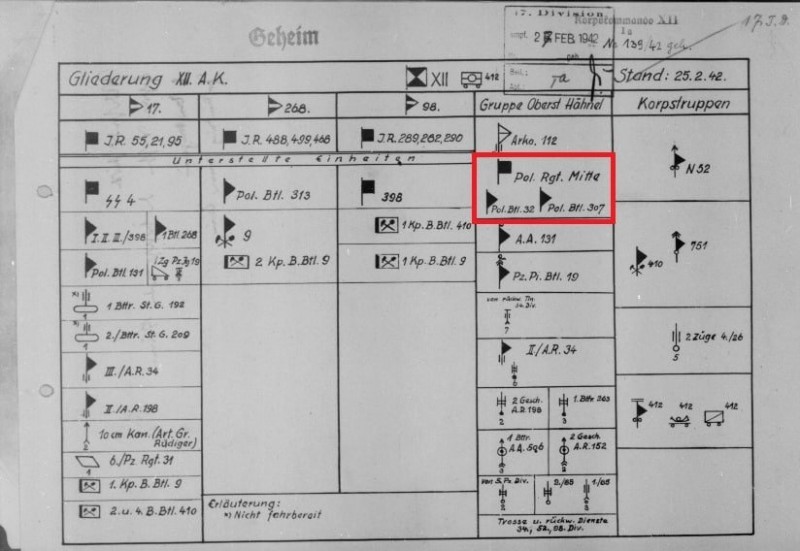 Geheim
17. Division
Korpskommando XII
Ia
FEB. 1942
No 139/42 geh.
Ia
Gliederung XII. A.K.
XII
412
Stand: 25.2.42.
17.
268.
98.
Gruppe Oberst Hähnel
Korpstruppen
J.R. 55,21,95
J.R. 488,499,468
J.R. 289,282,290
Arko. 112
N 52
Unterstellte Einheiten
ϟϟ 4
Pol. Btl. 313
398
Pol. Rgt. Mitte
Pol. Btl. 32
Pol. Btl. 307
I. II. III./398
1 Btl 268
9
1 Kp. B. Btl. 410
A.A. 131
410
751
Pol. Btl. 131
1 Zg Pz. Jg 19
2 Kp. B. Btl. 9
1 Kp. B. Btl. 9
Pz. Pi. Btl. 19
*) 1 Bttr. St. G. 192
1
von rückw. Tln.
34. Div.
7
*) 2./Bttr. St. G. 209
1
2 Züge 4./26
5
III./A.R. 34
II./A.R. 34
6
II./A.R. 198
2 Gesch.
A.R. 198
2
1. Bttr 263
3
10 cm Kan. (Art. Gr.
Rüdiger)
2
412
412
412
6./Pz. Rgt. 31
1
1 Bttr.
A.A. 506
3
2 Gesch.
A.R. 152
2
1. Kp. B. Btl. 9
von 5. Pz. Div.
2
2./65
1./65
3
2. u. 4. B. Btl. 410
Erläuterung:
*) Nicht fahrbereit
Trosse u. rückw. Dienste
34., 52., 98. Div.